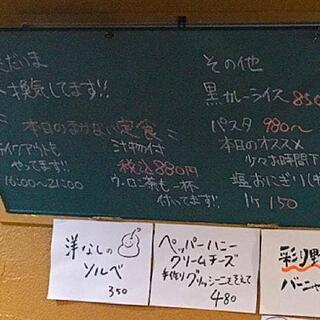 ただいま
換気してます!!
本日のまかない定食
テイクアウトも
やってます!!
16:00〜21:00
汁物付
税込880円
ウーロン茶も一杯
付いてます!!
その他
黒カレーライス 850
パスタ 980〜
本日のオススメ
少々お時間下
塩おにぎり
1ケ 150
洋なしの
ソルベ
350
ペッパーハニー
クリームチーズ
手作りグリッシーニをそえて
480
彩り野
バーニャ